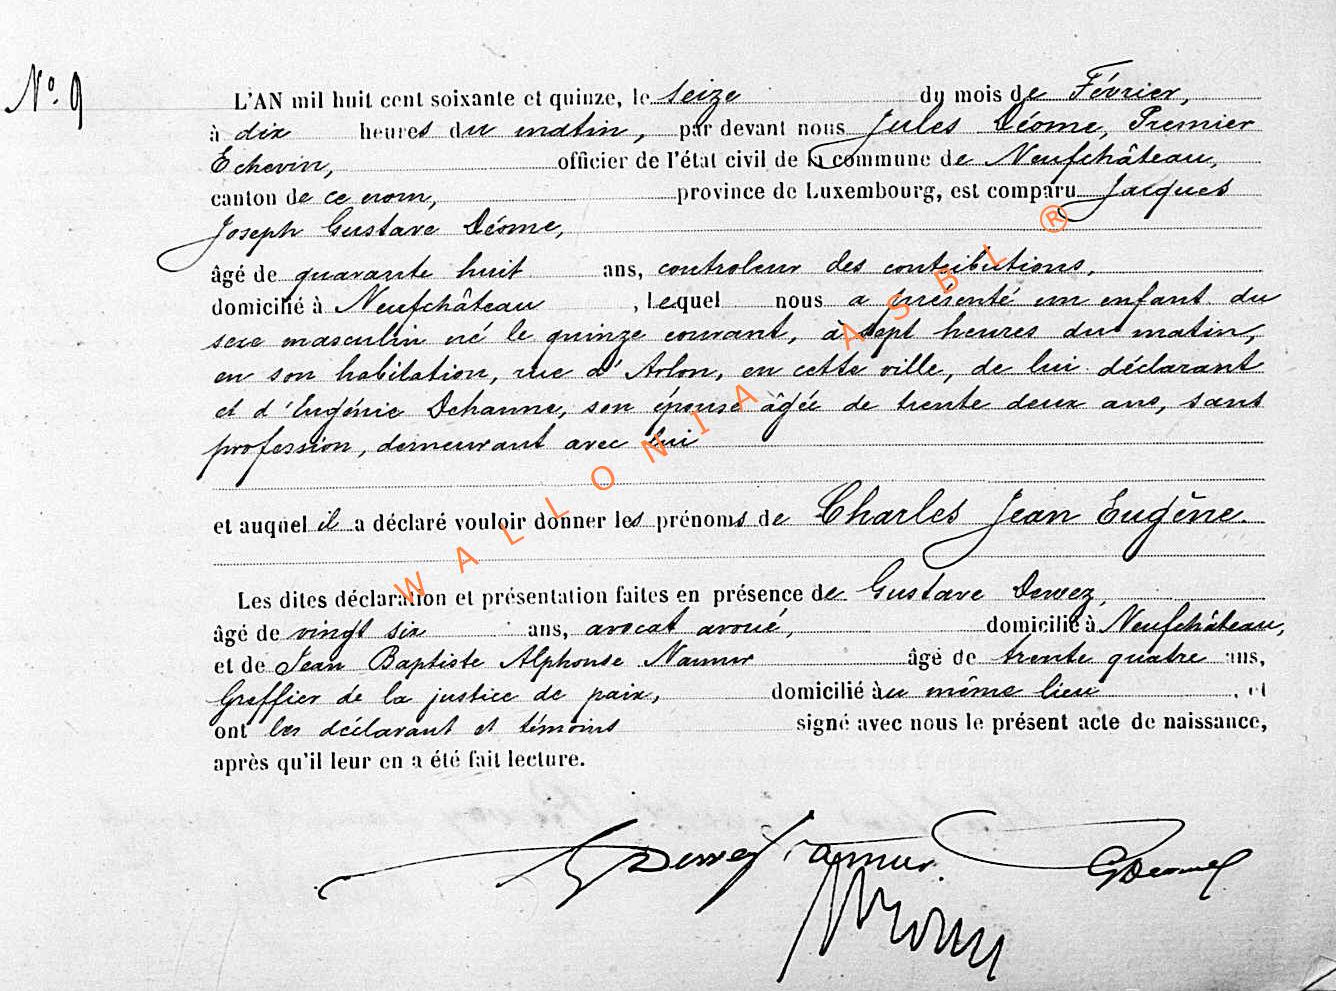 N° 9
L'AN mil huit cent soixante et quinze, le seize du mois de Février,
à dix heures du matin, par devant nous Jules Déome, Premier
Echevin, officier de l'état civil de la commune de Neufchâteau,
canton de ce nom, province de Luxembourg, est comparu Jacques
Joseph Gustave Déome,
âgé de quarante huit ans, controleur des contributions,
domicilié à Neufchâteau, Lequel nous a présenté un enfant du
sexe masculin né le quinze courant, à sept heures du matin,
en son habitation, rue d'Arlon, en cette ville, de lui déclarant
et d'Eugénie Dehanne, son épouse âgée de trente deux ans, sans
profession, demeurant avec lui
et auquel il a déclaré vouloir donner les prénoms de Charles Jean Eugène.
Les dites déclaration et présentation faites en présence de Gustave Dewez,
âgé de vingt six ans, avocat avoué, domicilié à Neufchâteau,
et de Jean Baptiste Alphonse Namur âgé de trente quatre ans,
Greffier de la justice de paix, domicilié au même lieu, et
ont les déclarant et témoins signé avec nous le présent acte de naissance,
après qu'il leur en a été fait lecture.
G Dewez Namur. G Deome
WALLONIA ASBL ®